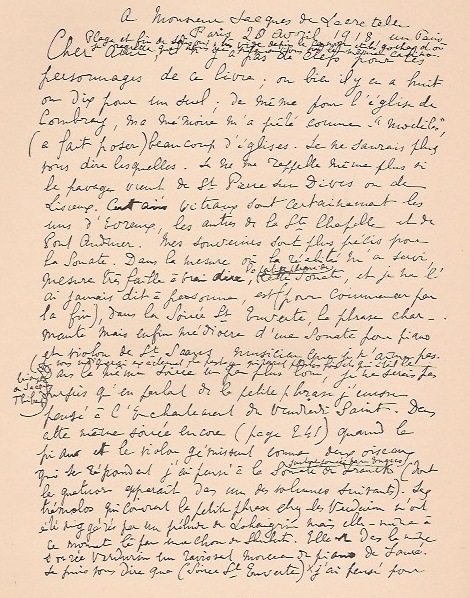 A Monsieur Jacques de Lacretelle
Paris 20 avril 1918
Cher ami, il n'y a pas de clefs pour les
personnages de ce livre; ou bien il y en a huit
ou dix pour un seul; de même pour l'église de
Combray, ma mémoire m'a prêté comme "modèles"
(a fait poser) beaucoup d'églises. Je ne saurais plus
vous dire lesquelles. Je ne me rappelle même plus si
le pavage vient de St Pierre sur Dives ou de
Lisieux. Certains vitraux sont certainement les
uns d'Evreux, les autres de la Ste Chapelle et de
Pont Audemer. Mes souvenirs sont plus précis pour
la Sonate. Dans la mesure où la réalité m'a servi,
mesure très faible à vrai dire, la petite phrase de
cette Sonate, et je ne l'
ai jamais dit à personne, est (pour commencer par
la fin), dans la Soirée St Euverte, la phrase char-
mante mais enfin médiocre d'une Sonate pour piano
et violon de St Saens, musicien que je n'aime pas.
Dans la même soirée un peu plus loin, je ne serais pas
surpris qu'en parlant de la petite phrase j'eusse
pensé à l'Enchantement du Vendredi Saint. Dans
cette même soirée encore (page 241) quand le
piano et le violon gémissent comme deux oiseaux
qui se répondent j'ai pensé à la Sonate de Franck (dont
le quatuor apparaît dans un des volumes suivants). Les
trémolos qui couvrent la petite phrase chez les Verdurin m'ont
été suggérés par un prélude de Lohengrin mais elle-même à
ce moment là par une chose de Schubert. Elle est dans la même
soirée Verdurin un ravissant morceau de piano de Fauré.
Je puis vous dire que (Soirée St Euverte) j'ai pensé pour